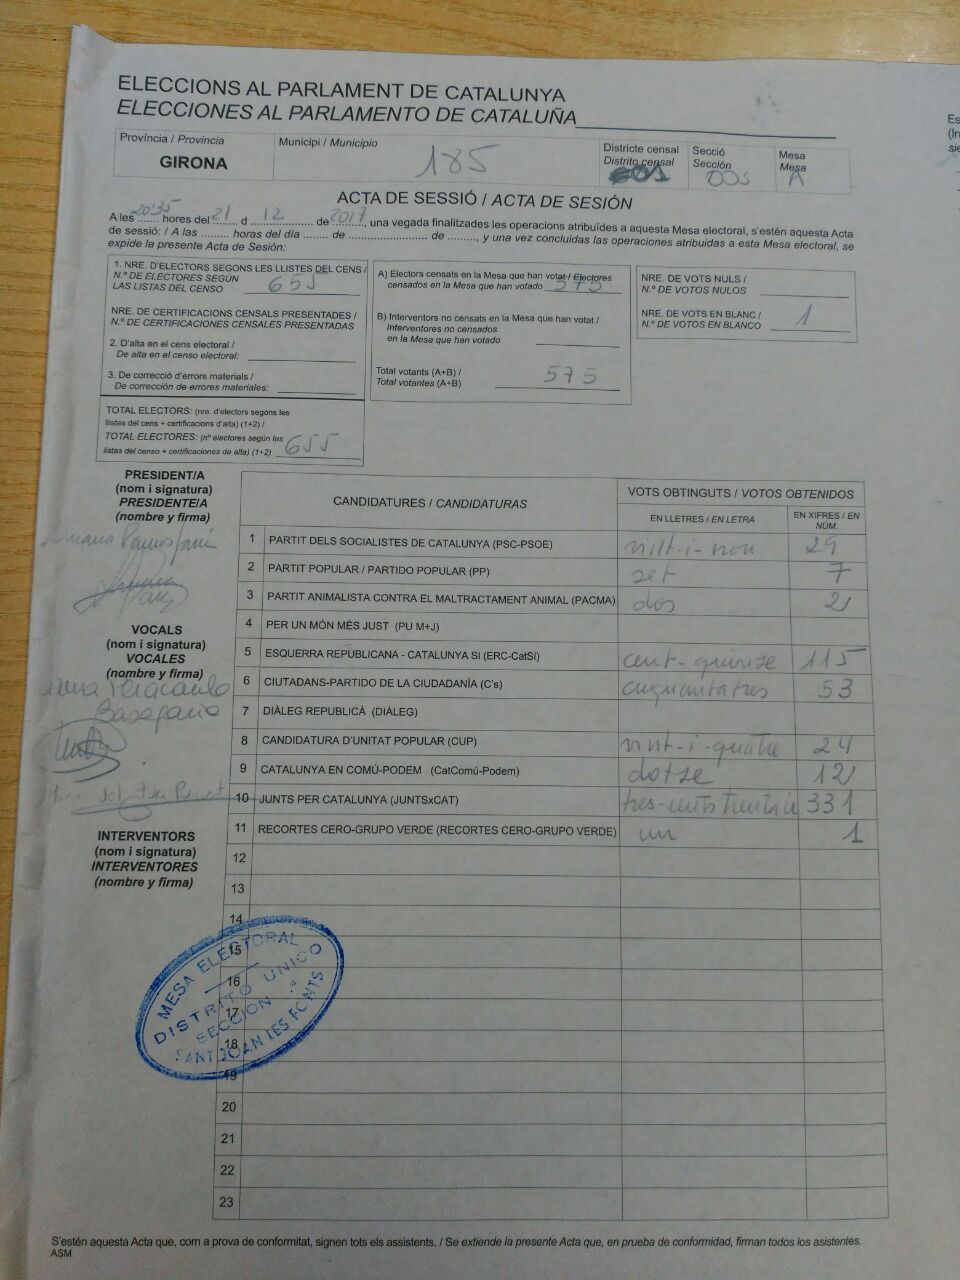 ELECCIONS AL PARLAMENT DE CATALUNYA
ELECCIONES AL PARLAMENTO DE CATALUÑA
Província / Provincia
GIRONA
Municipi / Municipio
185
Districte censal
Distrito censal
001
Secció
Sección
005
Mesa
Mesa
A
ACTA DE SESSIÓ / ACTA DE SESIÓN
A les 20:35 hores del 21 d 12 de 2017, una vegada finalitzades les operacions atribuïdes a aquesta Mesa electoral, s'estén aquesta Acta
de sessió: / A las ......... horas del día ....... de ........................ de ........., y una vez concluidas las operaciones atribuidas a esta Mesa electoral, se
expide la presente Acta de Sesión:
1. NRE. D'ELECTORS SEGONS LES LLISTES DEL CENS /
N.º DE ELECTORES SEGÚN
LAS LISTAS DEL CENSO 655
NRE. DE CERTIFICACIONS CENSALS PRESENTADES /
N.º DE CERTIFICACIONES CENSALES PRESENTADAS
2. D'alta en el cens electoral /
De alta en el censo electoral:
3. De correcció d'errors materials /
De corrección de errores materiales:
TOTAL ELECTORS: (nre. d'electors segons les
llistes del cens + certificacions d'alta) (1+2) /
TOTAL ELECTORES: (nº electores según las
listas del censo + certificaciones de alta) (1+2) 655
A) Electors censats en la Mesa que han votat / Electores
censados en la Mesa que han votado 575
B) Interventors no censats en la Mesa que han votat /
Interventores no censados
en la Mesa que han votado
Total votants (A+B) /
Total votantes (A+B) 575
NRE. DE VOTS NULS /
N.º DE VOTOS NULOS
NRE. DE VOTS EN BLANC /
N.º DE VOTOS EN BLANCO 1
PRESIDENT/A
(nom i signatura)
PRESIDENTE/A
(nombre y firma)
VOCALS
(nom i signatura)
VOCALES
(nombre y firma)
INTERVENTORS
(nom i signatura)
INTERVENTORES
(nombre y firma)
CANDIDATURES / CANDIDATURAS
VOTS OBTINGUTS / VOTOS OBTENIDOS
EN LLETRES / EN LETRA
EN XIFRES / EN NÚM.
1 PARTIT DELS SOCIALISTES DE CATALUNYA (PSC-PSOE) vint-i-nou 29
2 PARTIT POPULAR / PARTIDO POPULAR (PP) set 7
3 PARTIT ANIMALISTA CONTRA EL MALTRACTAMENT ANIMAL (PACMA) dos 2
4 PER UN MÓN MÉS JUST (PU M+J)
5 ESQUERRA REPUBLICANA - CATALUNYA SÍ (ERC-CatSí) cent-quinze 115
6 CIUTADANS-PARTIDO DE LA CIUDADANÍA (C's) cinquantatres 53
7 DIÀLEG REPUBLICÀ (DIÀLEG)
8 CANDIDATURA D'UNITAT POPULAR (CUP) vint-i-quatre 24
9 CATALUNYA EN COMÚ-PODEM (CatComú-Podem) dotze 12
10 JUNTS PER CATALUNYA (JUNTSxCAT) tres-cents trenta-u 331
11 RECORTES CERO-GRUPO VERDE (RECORTES CERO-GRUPO VERDE) un 1
12
13
14
15
16
17
18
19
20
21
22
23
MESA ELECTORAL
DISTRITO UNICO
SECCION
SANT JOAN LES FONTS
S'estén aquesta Acta que, com a prova de conformitat, signen tots els assistents. / Se extiende la presente Acta que, en prueba de conformidad, firman todos los asistentes.
ASM